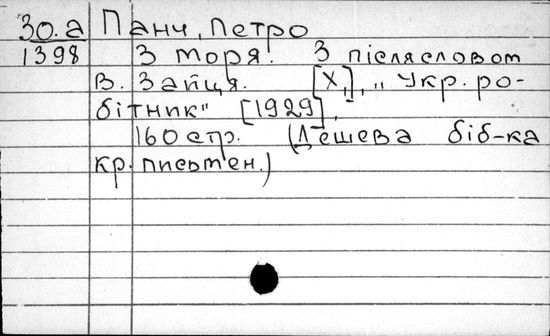 30.а Панч, Петро
1398 З моря. З післясловом
В. Зайця. [Х.], „Укр. ро-
бітник" [1929],
160 стр. (Дешева біб-ка
кр. письмен.)